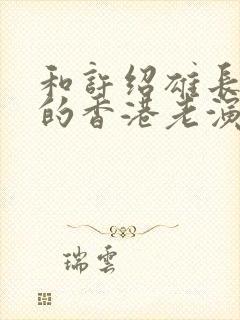 和許绍雄長
的香港老演
瑞雲